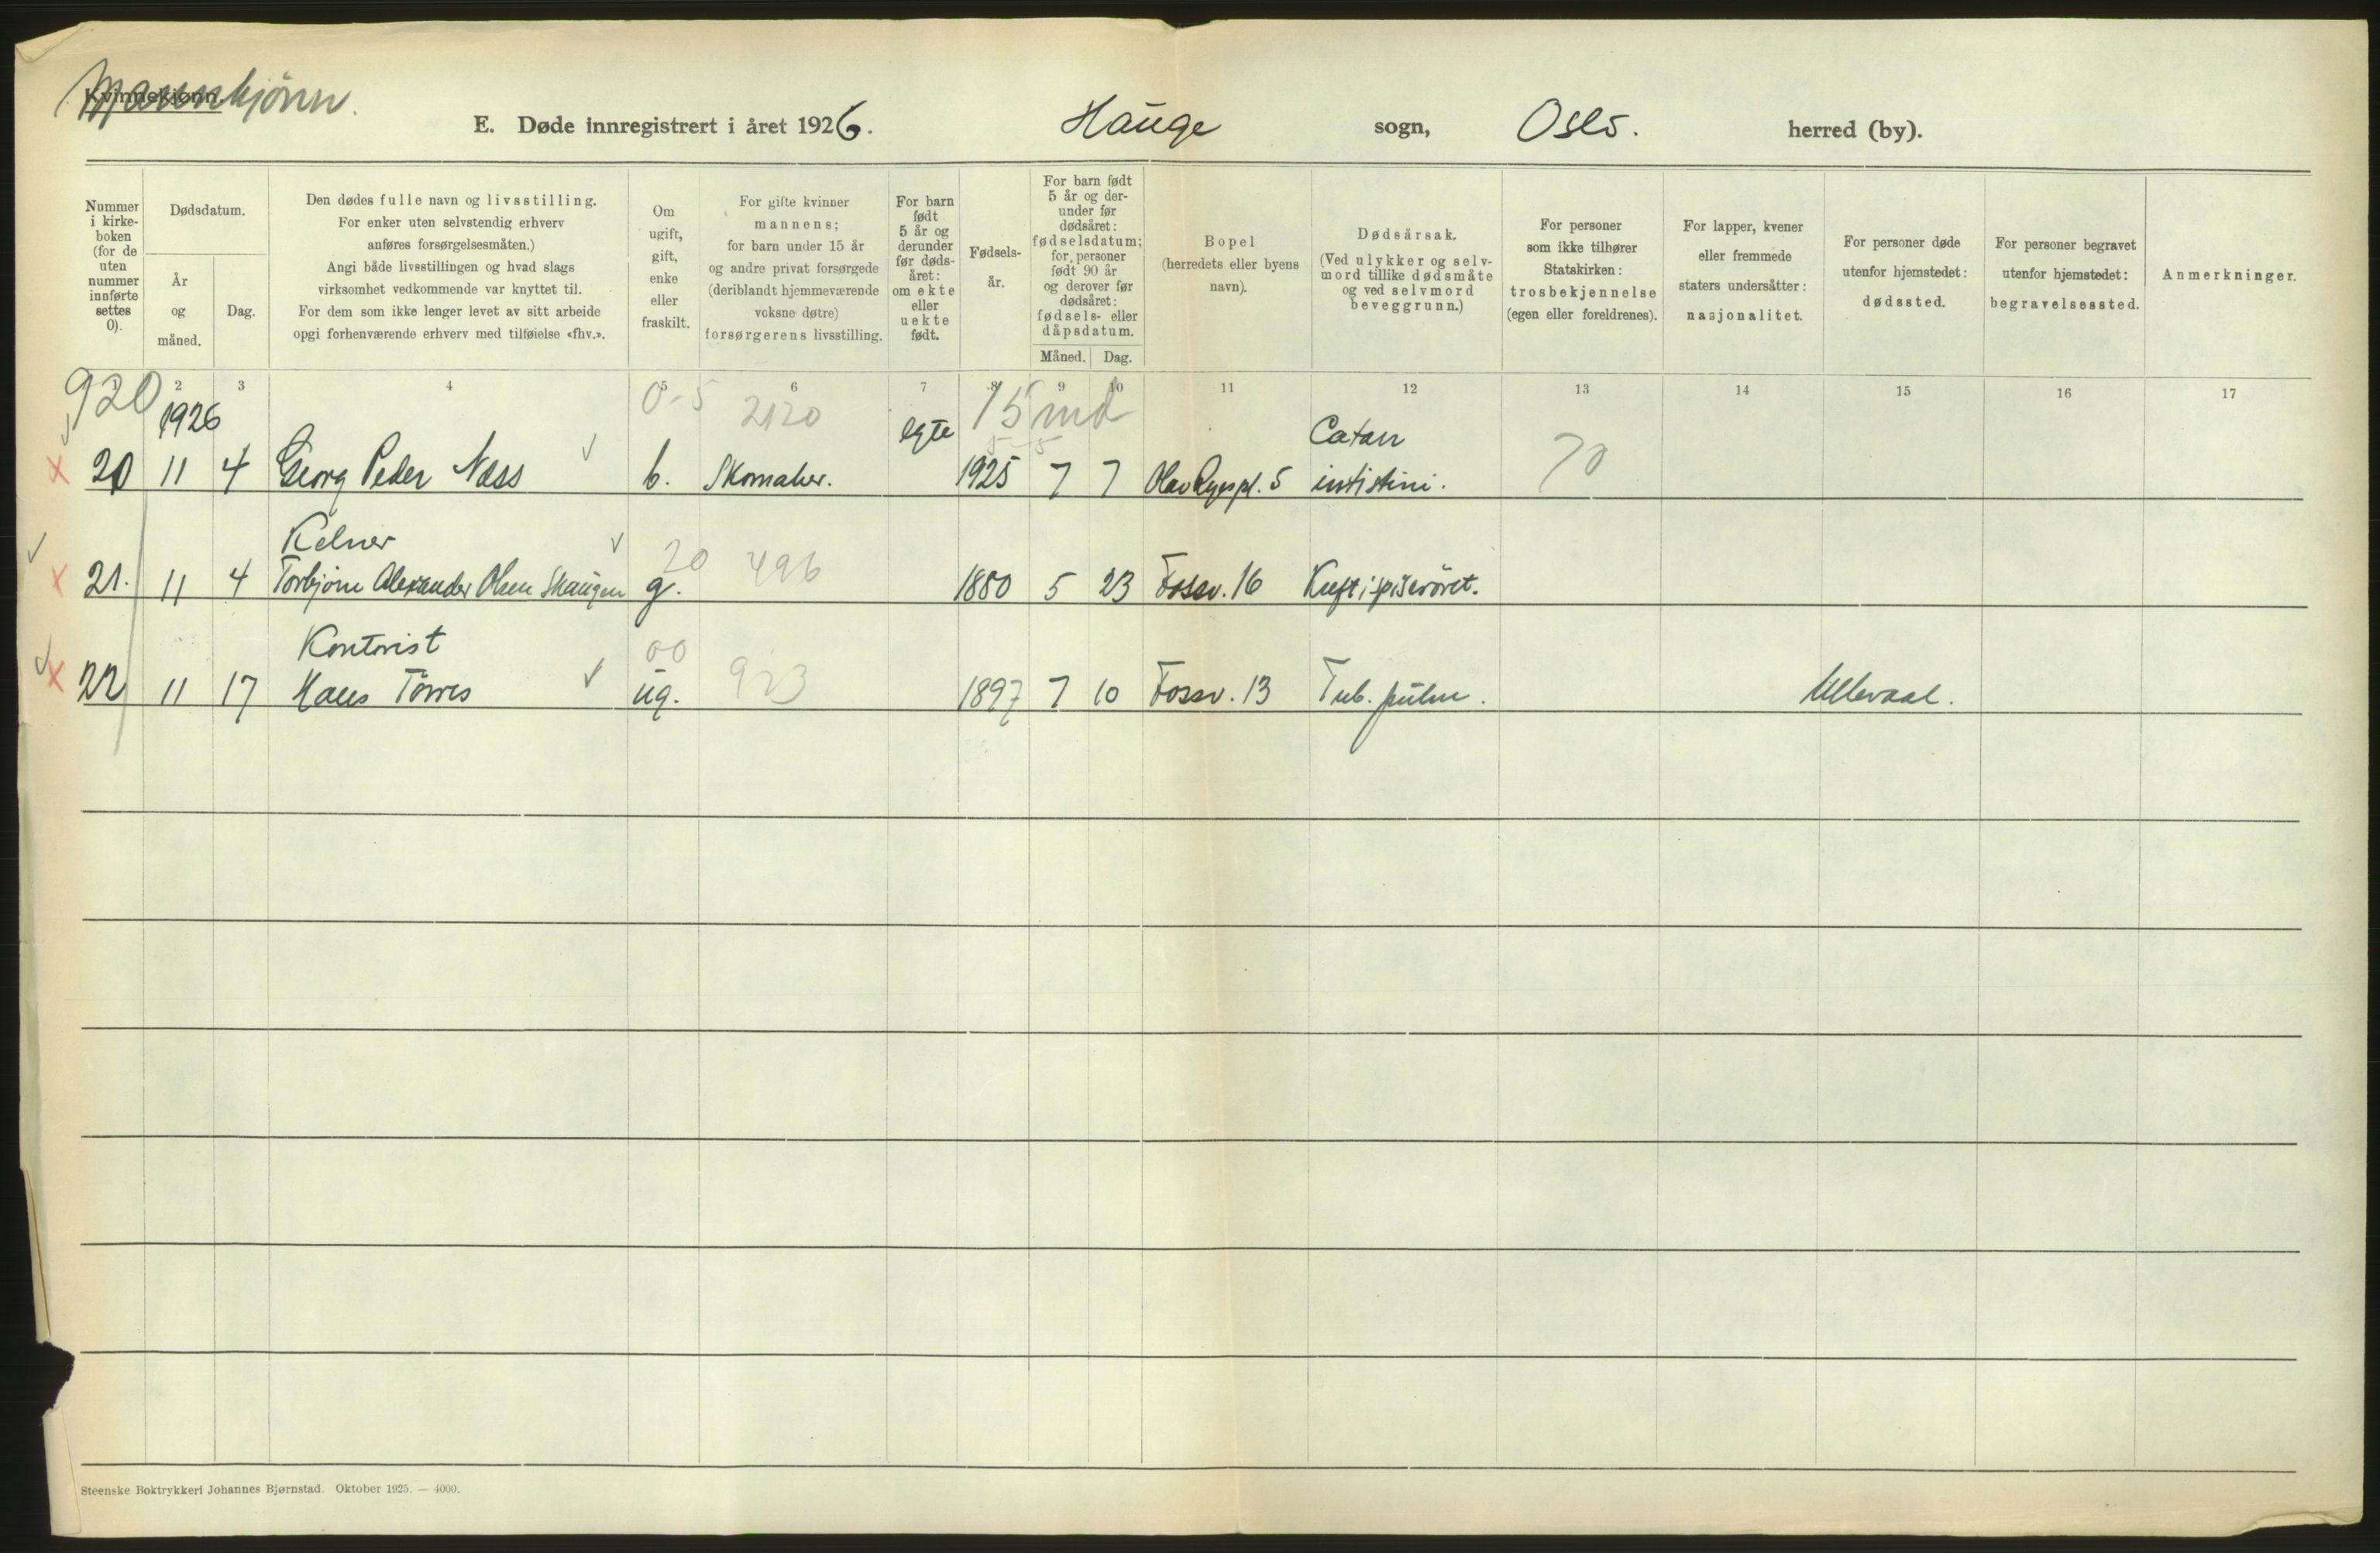 Kvinnekjønn.
Mannkjönn.
E. Døde innregistrert i året 1926.
Hauge sogn, Oslo. herred (by).
Nummer
i kirke-
boken
(for de
uten
nummer
innførte
settes
0).
Dødsdatum.
År
og
måned.
Dag.
Den dødes fulle navn og livsstilling.
For enker uten selvstendig erhverv
anføres forsørgelsesmåten.)
Angi både livsstillingen og hvad slags
virksomhet vedkommende var knyttet til.
For dem som ikke lenger levet av sitt arbeide
opgi forhenværende erhverv med tilføielse «fhv.».
Om
ugift,
gift,
enke
eller
fraskilt.
For gifte kvinner
mannens;
for barn under 15 år
og andre privat forsørgede
(deriblandt hjemmeværende
voksne døtre)
forsørgerens livsstilling.
For barn
født
5 år og
derunder
før døds-
året:
om ekte
eller
uekte
født.
Fødsels-
år.
For barn født
5 år og der-
under før
dødsåret:
fødselsdatum;
for personer
født 90 år
og derover før
dødsåret:
fødsels- eller
dåpsdatum.
Måned. Dag.
Bopel
(herredets eller byens
navn).
Dødsårsak.
(Ved ulykker og selv-
mord tillike dødsmåte
og ved selvmord
beveggrunn.)
For personer
som ikke tilhører
Statskirken:
trosbekjennelse
(egen eller foreldrenes).
For lapper, kvener
eller fremmede
staters undersåtter:
nasjonalitet.
For personer døde
utenfor hjemstedet:
dødssted.
For personer begravet
utenfor hjemstedet:
begravelsessted.
Anmerkninger.
1 2 3 4 5 6 7 8 9 10 11 12 13 14 15 16 17
920 0-5 2120 15 md
1926 egte Catarr
20 11 4 Georg Peder Næss b. Skomaker. 1925 7 7 Olav Ryes pl. 5 intistini. 70
Kelner
20 496
21. 11 4 Torbjörn Alexander Olsen Skaugen g. 1880 5 23 Fossv. 16 Kreft i spiseröret.
Kontorist
00 923
22 11 17 Hans Törres ug. 1897 7 10 Fossv. 13 Tub. pulm. Ullevaal.
Steenske Boktrykkeri Johannes Bjørnstad. Oktober 1925. — 4000.